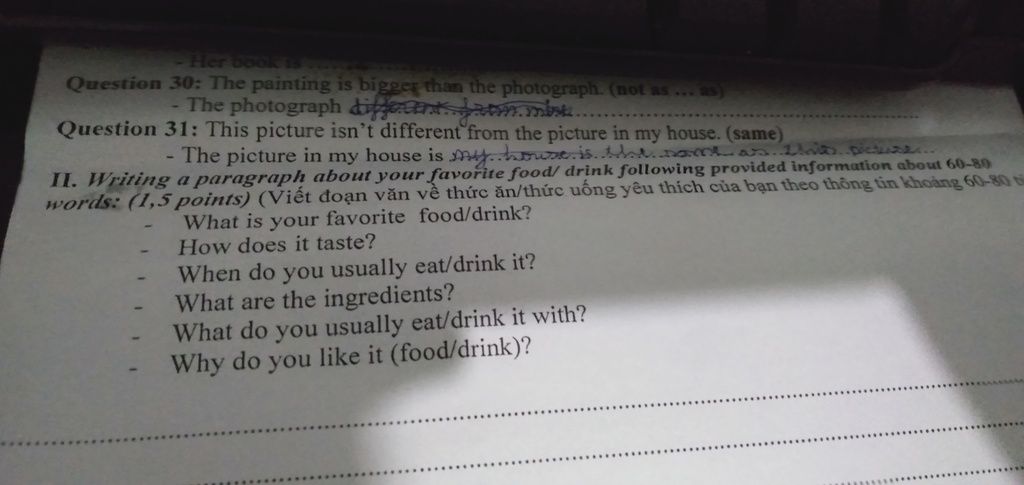 - Her book is ..................
Question 30: The painting is bigger than the photograph. (not as ... as)
- The photograph different from mine..................
Question 31: This picture isn't different from the picture in my house. (same)
- The picture in my house is my house is the same as this picture...
II. Writing a paragraph about your favorite food/ drink following provided information about 60-80
words: (1,5 points) (Viết đoạn văn về thức ăn/thức uống yêu thích của bạn theo thông tin khoảng 60-80
- What is your favorite food/drink?
- How does it taste?
- When do you usually eat/drink it?
- What are the ingredients?
- What do you usually eat/drink it with?
- Why do you like it (food/drink)?